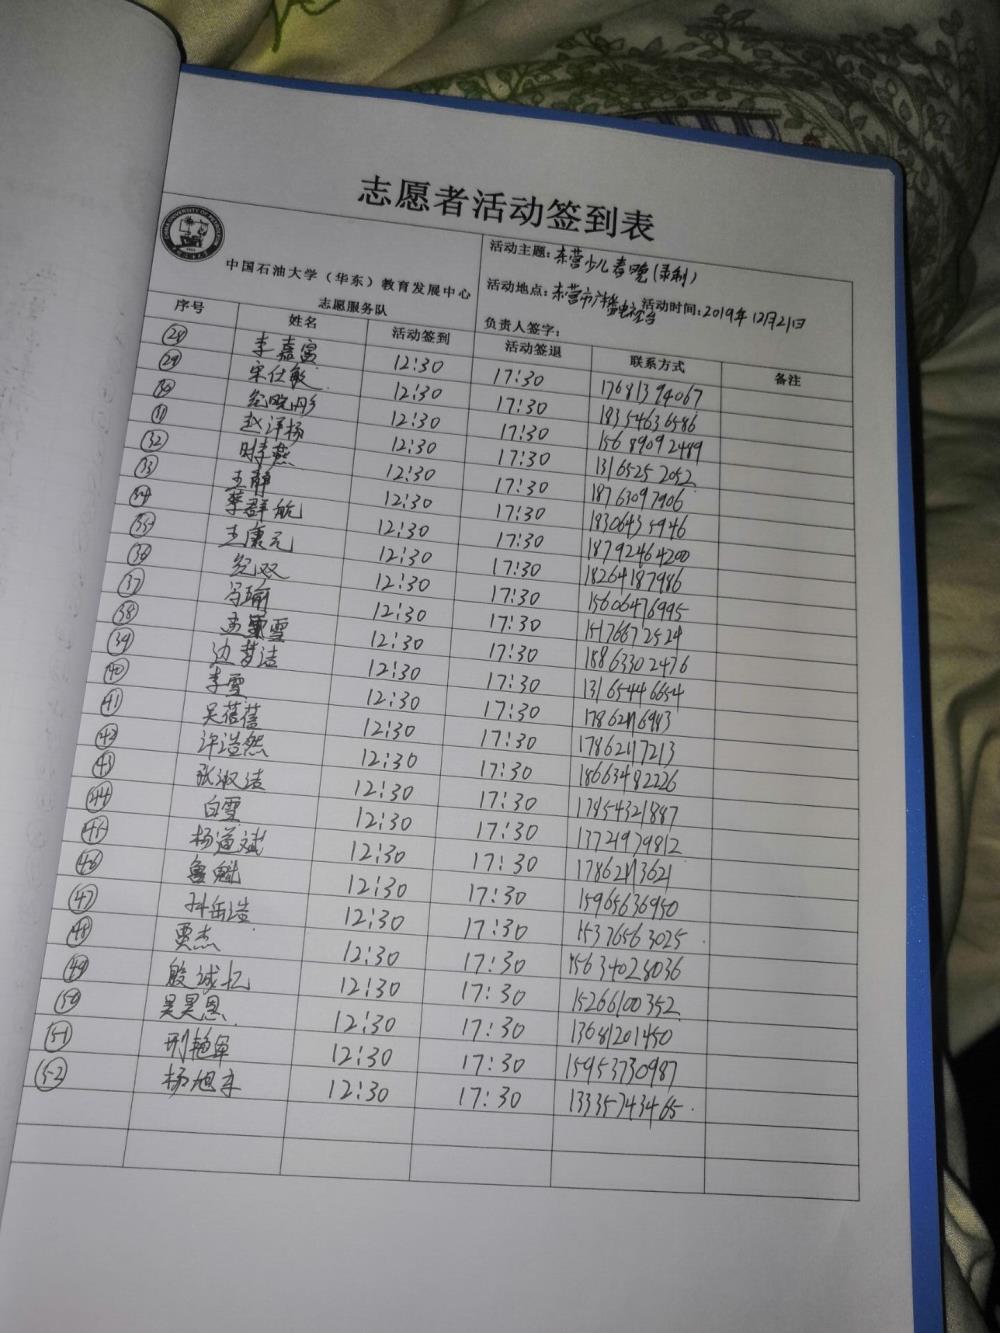 志愿者活动签到表
中国石油大学（华东）教育发展中心
志愿服务队
活动主题：东营少儿春晚（录制）
活动地点：东营市广播电视台 活动时间：2019年12月21日
负责人签字：
序号 姓名 活动签到 活动签退 联系方式 备注
28 李嘉富 12:30 17:30 17681394067
29 宋仕敏 12:30 17:30 18354636586
30 纪晓彤 12:30 17:30 15689092489
31 赵洋杨 12:30 17:30 13165252052
32 时孝燕 12:30 17:30 18763097906
33 王静 12:30 17:30 18306435946
34 李群航 12:30 17:30 18792464200
35 王康元 12:30 17:30 18264187986
36 纪双 12:30 17:30 15606476995
37 冯瑜 12:30 17:30 15176672524
38 雪 12:30 17:30 18863302476
39 边梦洁 12:30 17:30 13165446654
40 李雪 12:30 17:30 17862116983
41 吴蓓蓓 12:30 17:30 17862117213
42 许浩然 12:30 17:30 18663482226
43 张淑洁 12:30 17:30 17854321887
44 白雪 12:30 17:30 13721979812
45 杨道斌 12:30 17:30 17862113621
46 鲁魁 12:30 17:30 15965636950
47 孙岳浩 12:30 17:30 15376563025
48 贾杰 12:30 17:30 15634028036
49 殷诚忆 12:30 17:30 15266100352
50 吴昊恩 12:30 17:30 13681201450
51 邢艳军 12:30 17:30 15953730987
52 杨旭东 12:30 17:30 13335743465